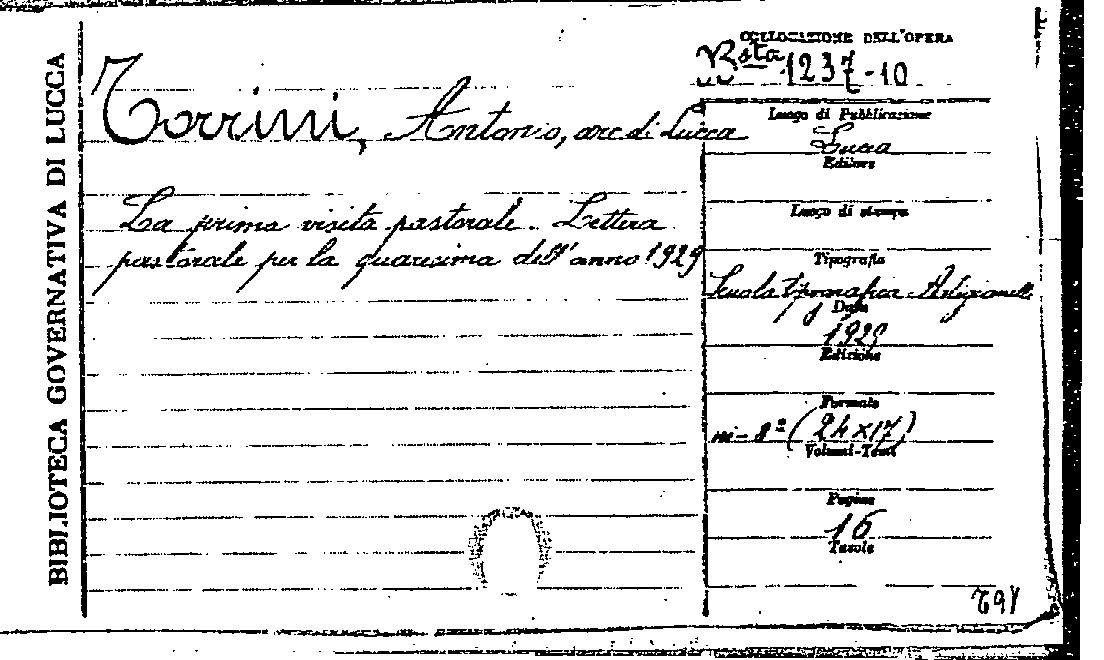 BIBLIOTECA GOVERNATIVA DI LUCCA
Torrini, Antonio, arc. di Lucca
La prima visita pastorale. Lettera
pastorale per la quaresima dell'anno 1929
COLLOCAZIONE DELL'OPERA
Bsta 1237-10
Luogo di Pubblicazione
Lucca
Editore
Luogo di stampa
Tipografia
Scuola tipografica Artigianelli
Data
1929
Edizione
Formato
in-8º (24×17)
Volumi-Tomi
Pagine
16
Tavole